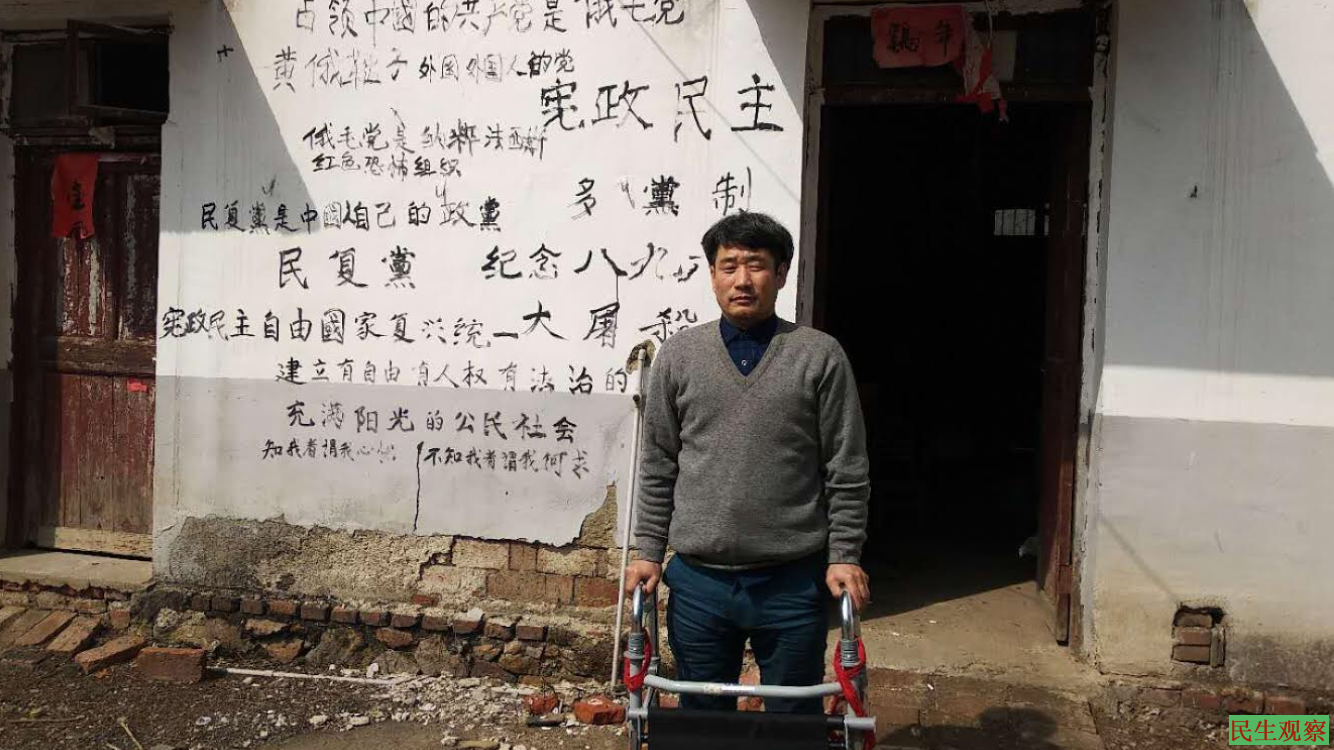 占领中國的共产党是俄毛党
黄俄鞑子 外国外国人的党
宪政民主
俄毛党是纳粹法西斯
红色恐怖组织
多 黨 制
民复黨是中國人自己的政黨
民复黨 纪念八九六
宪政民主自由國家复兴统一大屠殺
建立有自由有人权有法治的
充满阳光的公民社会
知我者谓我心忧 不知我者谓我何求
壹元
年
民生观察